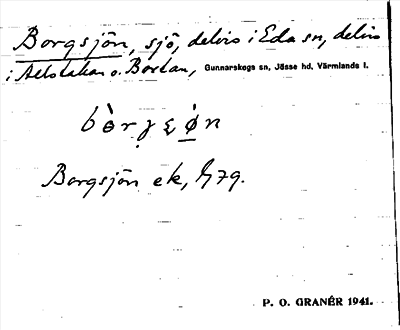 Borgsjön, sjö, delvis i Eda sn, delvis
i Aelstakan o. Bortan, Gunnarskogs sn, Jösse hd, Värmlands l.
Borgsjön ek, 79.
P. O. GRANÉR 1941.